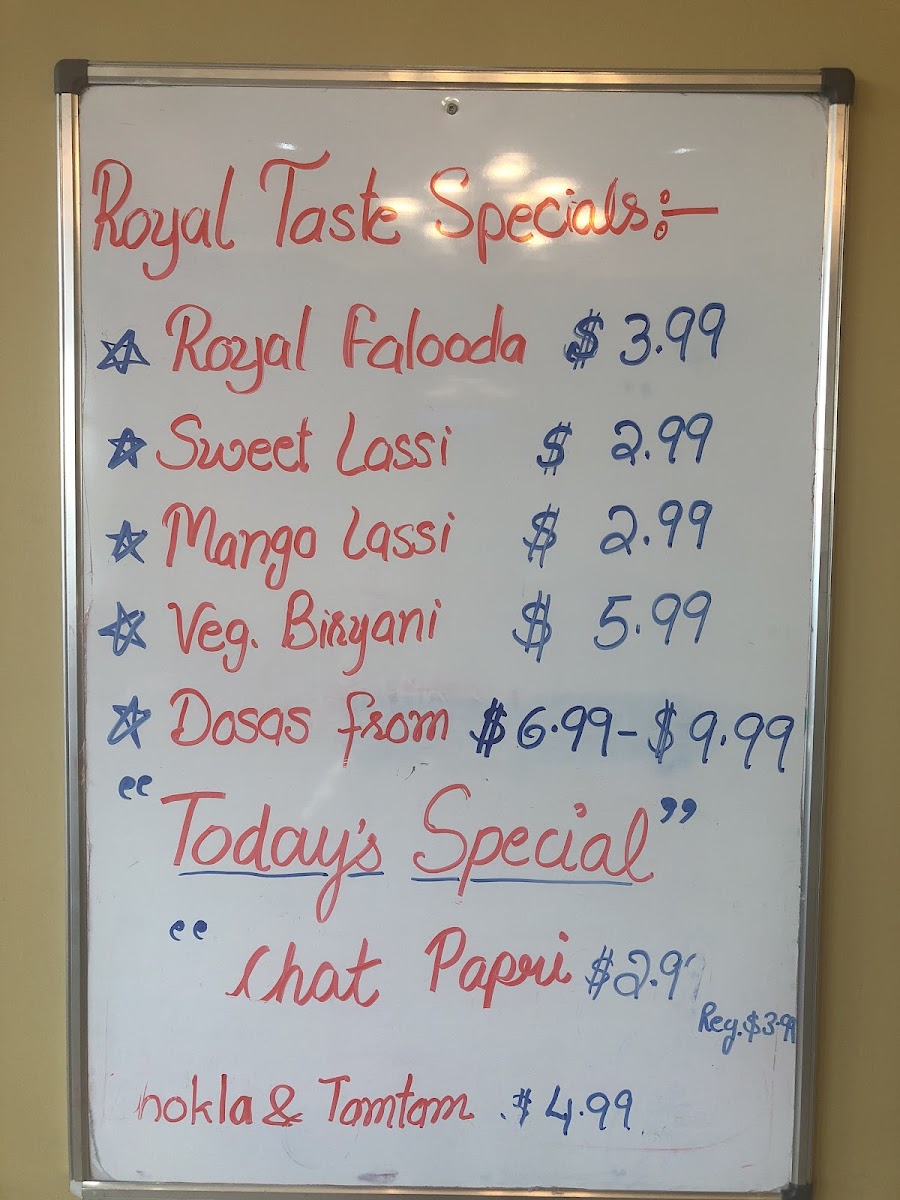 Royal Taste Specials:-
☆ Royal Falooda $ 3.99
☆ Sweet Lassi $ 2.99
☆ Mango Lassi $ 2.99
☆ Veg. Biryani $ 5.99
☆ Dosas from $6.99-$9.99
“Today's Special”
“ Chat Papri $2.9
Reg. $3.99
hokla & Tomtom $4.99